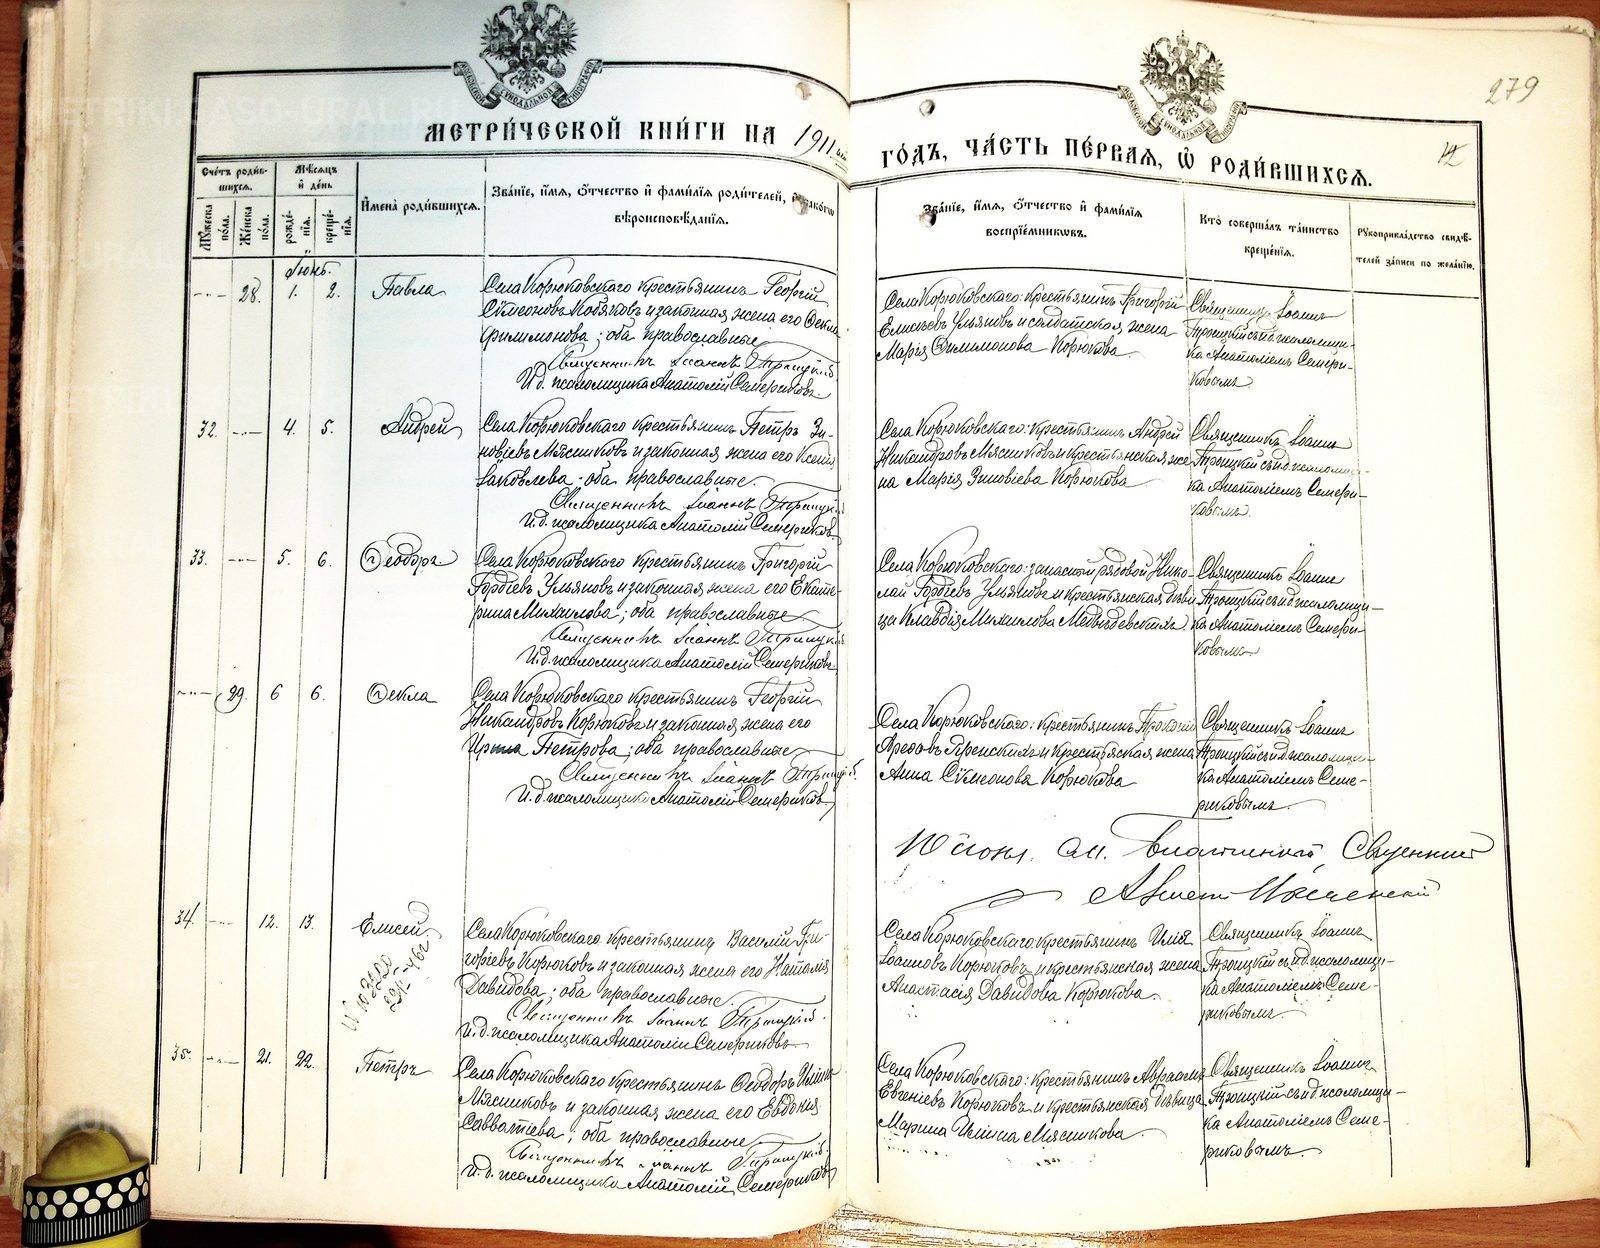 279
МЕТРИ́ЧЕСКОЙ КНИ́ГИ НА 1911 ый ГО́ДЪ, ЧА́СТЬ ПЕ́РВАЯ, Ѡ РОДИ́ВШИХСЯ.
Сче́тъ роди́в-
шихся.
Му́жеска по́ла.
Же́нска по́ла.
Мѣ́сяцъ
и҆ де́нь
рожде́-
нїя.
креще́-
нїя.
И҆мена̀ роди́вшихся.
Зва́нїе, и҆́мя, ѻ҆́тчество и҆ фамилїя роди́телей, и҆ како́гѡ
вѣроисповѣ́данїя.
Зва́нїе, и҆́мя, ѻ҆́тчество и҆ фами́лїя
воспрїе́мникѡвъ.
Кто̀ соверша́лъ та́инство
креще́нїя.
Рꙋкоприкла́дство свидѣ́-
телей за́писи по жела́нїю.
Іюнь.
28. 1. 2. Павла
Села Корюковскаго крестьянинъ Георгій
Сѵмеоновъ Кобяковъ и законная жена его Ѳекла
Филимонова; оба православные
Священникъ Іоаннъ Троицкій
И. д. псаломщика Анатолій Семериковъ.
Села Корюковскаго: крестьянинъ Григорій
Елисѣевъ Ульяновъ и солдатская жена
Марія Филимонова Корюкова
Священникъ Іоаннъ
Троицкій съ и. д. псаломщи-
ка Анатоліемъ Семери-
ковымъ.
32. 4. 5. Андрей
Села Корюковскаго крестьянинъ Петръ Зи-
новіевъ Мясниковъ и законная жена его Ксенія
Іаковлева; оба православные.
Священникъ Іоаннъ Троицкій
И. д. псаломщика Анатолій Семериковъ
Села Корюковскаго: крестьянинъ Андрей
Никандровъ Мясниковъ и крестьянская же-
на Марія Зиновіева Корюкова
Священникъ Іоаннъ
Троицкій съ и. д. псаломщи-
ка Анатоліемъ Семери-
ковымъ.
33. 5. 6. Ѳеодора
Села Корюковскаго крестьянинъ Григорій
Гордѣевъ Ульяновъ и законная жена его Екате-
рина Михаилова; оба православные
Священникъ Іоаннъ Троицкій
И. д. псаломщика Анатолій Семериковъ
Села Корюковскаго: запасной рядовой Нико-
лай Гордѣевъ Ульяновъ и крестьянская дѣви-
ца Клавдія Михаилова Медвѣдевскихъ.
Священникъ Іоаннъ
Троицкій съ и. д. псаломщи-
ка Анатоліемъ Семери-
ковымъ.
29. 6 6. Ѳекла
Села Корюковскаго крестьянинъ Георгій
Никандровъ Корюковъ и законная жена его
Ирина Петрова; оба православные
Священникъ Іоаннъ Троицкій.
И. д. псаломщика Анатолій Семериковъ
Села Корюковскаго: крестьянинъ Прокопій
и крестьянская жена
Анна Сѵмеонова Корюкова
Священникъ Іоаннъ
Троицкій съ и. д. псаломщи-
ка Анатоліемъ Семе-
риковымъ.
Священникъ
34. 12. 13. Елисей
Села Корюковскаго крестьянинъ Василій Гри-
горіевъ Корюковъ и законная жена его Наталія
Давидова; оба православные.
Священникъ Іоаннъ Троицкій.
И. д. псаломщика Анатолій Семериковъ
Села Корюковскаго: крестьянинъ Илія
Іоанновъ Корюковъ и крестьянская жена
Анастасія Давидова Корюкова.
Священникъ Іоаннъ
Троицкій съ и. д. псаломщи-
ка Анатоліемъ Семе-
риковымъ.
35. 21. 22. Петръ
Села Корюковскаго крестьянинъ Ѳеодоръ Иліинъ
Мясниковъ и законная жена его Евдокія
Савватіева; оба православные
Священникъ Іоаннъ Троицкій.
И. д. псаломщика Анатолій Семериковъ
Села Корюковскаго: крестьянинъ Авраамъ
Евгеніевъ Корюковъ и крестьянская дѣвица
Марина Иліина Мясникова.
Священникъ Іоаннъ
Троицкій съ и. д. псаломщи-
ка Анатоліемъ Семе-
риковымъ.